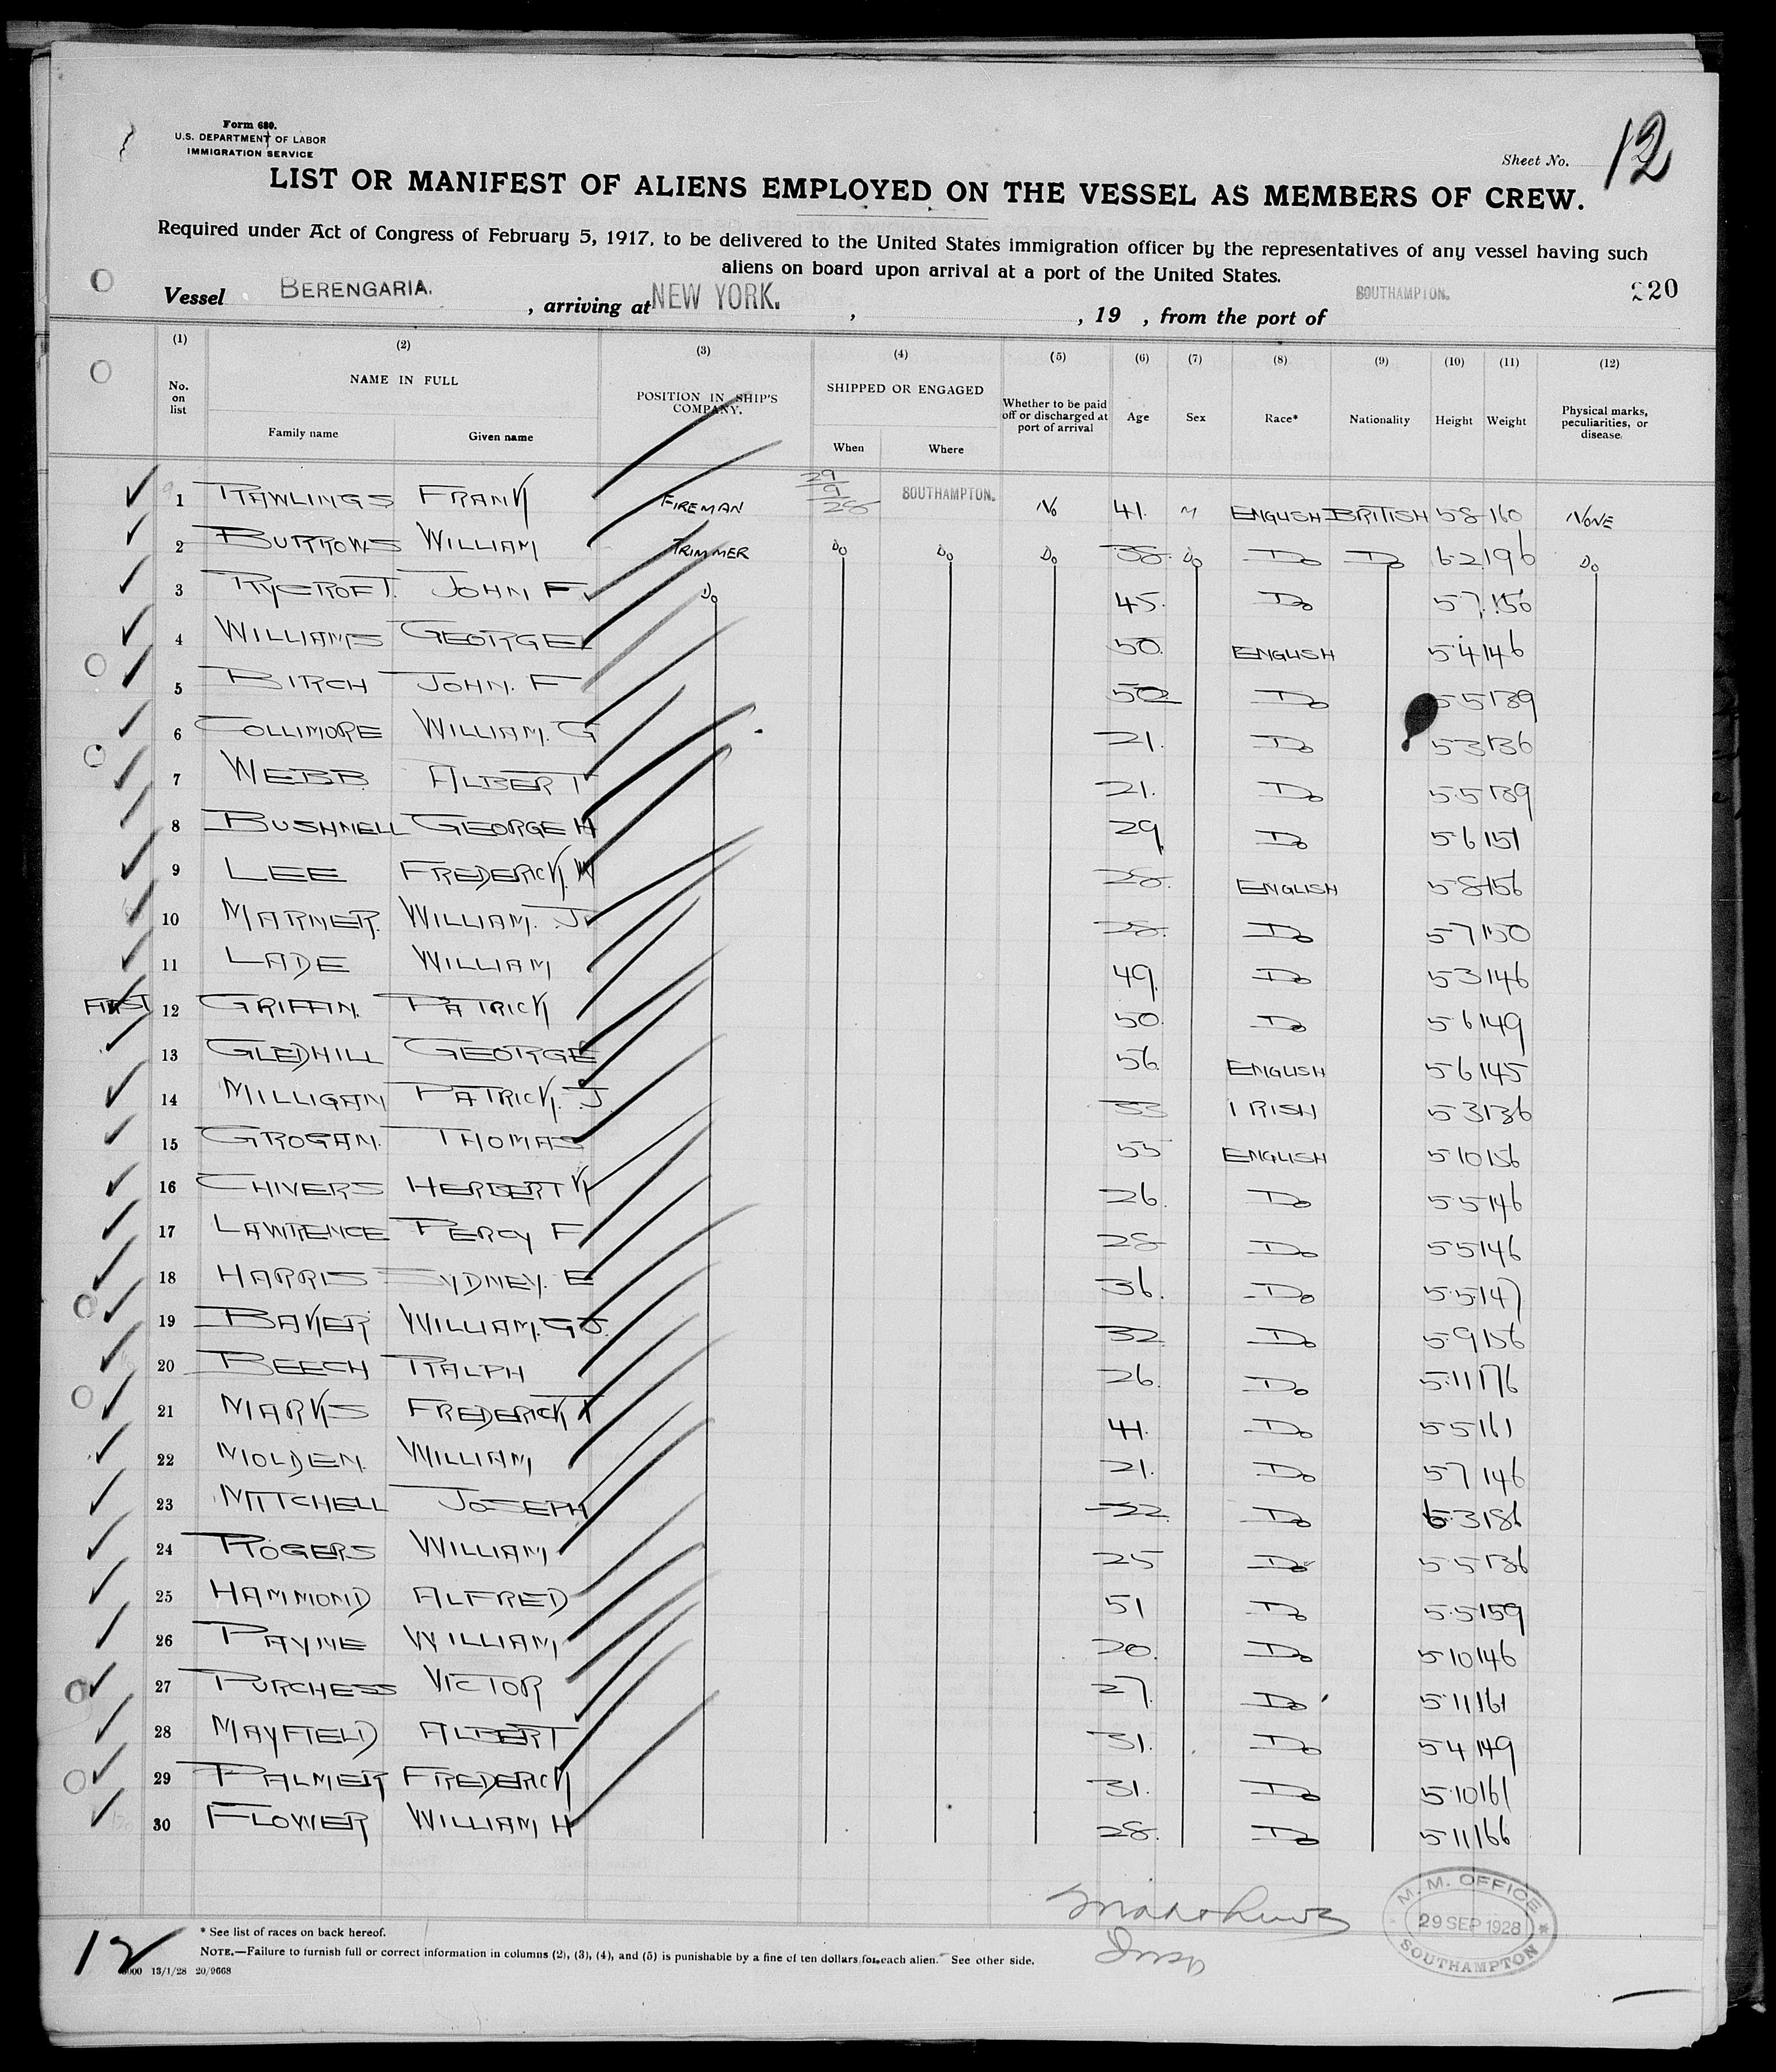 Form 680.
U.S. DEPARTMENT OF LABOR
IMMIGRATION SERVICE
Sheet No. 12
LIST OR MANIFEST OF ALIENS EMPLOYED ON THE VESSEL AS MEMBERS OF CREW.
Required under Act of Congress of February 5, 1917, to be delivered to the United States immigration officer by the representatives of any vessel having such
aliens on board upon arrival at a port of the United States.
220
Vessel BERENGARIA. , arriving at NEW YORK. , , 19 , from the port of SOUTHAMPTON.
(1) (2) (3) (4) (5) (6) (7) (8) (9) (10) (11) (12)
No. on list NAME IN FULL POSITION IN SHIP'S COMPANY. SHIPPED OR ENGAGED Whether to be paid off or discharged at port of arrival Age Sex Race* Nationality Height Weight Physical marks, peculiarities, or disease.
Family name Given name When Where
1 RAWLINGS FRANK FIREMAN 29/9/28 SOUTHAMPTON. No 41. M ENGLISH BRITISH 5 8 160 NONE
2 BURROWS WILLIAM TRIMMER Do Do Do 38. Do Do Do 6.2 196 Do
3 RYCROFT. JOHN F. Do 45. Do 5.7. 156
4 WILLIAMS GEORGE 50. ENGLISH 5.4 146
5 BIRCH JOHN. F 50 Do 5 5 139
6 COLLIMORE WILLIAM. G 21. Do 5 3 136
7 WEBB ALBERT 21. Do 5.5 139
8 BUSHNELL GEORGE H 29. Do 5.6 151
9 LEE FREDERICK. W 28. ENGLISH 5.8 156
10 MARNER. WILLIAM. J 28. Do 5.7 150
11 LADE WILLIAM 49. Do 5.3 146
FIRST 12 GRIFFIN. PATRICK 50. Do 5.6 149
13 GLEDHILL GEORGE 56. ENGLISH 5.6 145
14 MILLIGAN PATRICK. J. 33 IRISH 5.3 136
15 GROGAN. THOMAS 55 ENGLISH 5.10 156
16 CHIVERS HERBERT K 26. Do 5.5 146
17 LAWRENCE PERCY F 28 Do 5.5 146
18 HARRIS SYDNEY. E 36. Do 5.5 147
19 BAKER WILLIAM. G J. 32 Do 5.9 156
20 BEECH RALPH 26. Do 5.11 176
21 MARKS FREDERICK T 41. Do 5.5 161
22 MOLDEN. WILLIAM 21. Do 5.7 146
23 MITCHELL JOSEPH 32. Do 6.3 186
24 ROGERS WILLIAM 25 Do 5.5 136
25 HAMMOND ALFRED 51 Do 5.5 159
26 PAYNE WILLIAM 20. Do 5.10 146
27 PURCHESS VICTOR 27. Do 5.11 161
28 MAYFIELD ALBERT 31. Do 5.4 149
29 PALMER FREDERICK 31. Do 5.10 161
30 FLOWER WILLIAM H 28. Do 5.11 166
M. M. OFFICE
29 SEP 1928
SOUTHAMPTON
* See list of races on back hereof.
NOTE.—Failure to furnish full or correct information in columns (2), (3), (4), and (5) is punishable by a fine of ten dollars for each alien. See other side.
12
13/1/28 20/9668